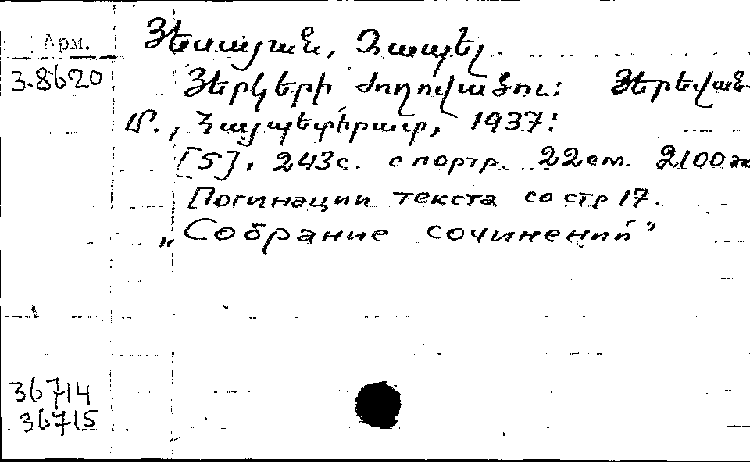 Арм.
Յեսայան, Զապել.
3.8620
Յերկերի ժողովածու: Յերեվան-
Մ., Հայպետհրատ, 1937:
[5], 243с. с портр. 22см. 2100эк
Погинации текста со стр 17.
„Собрание сочинений"
36714
36715